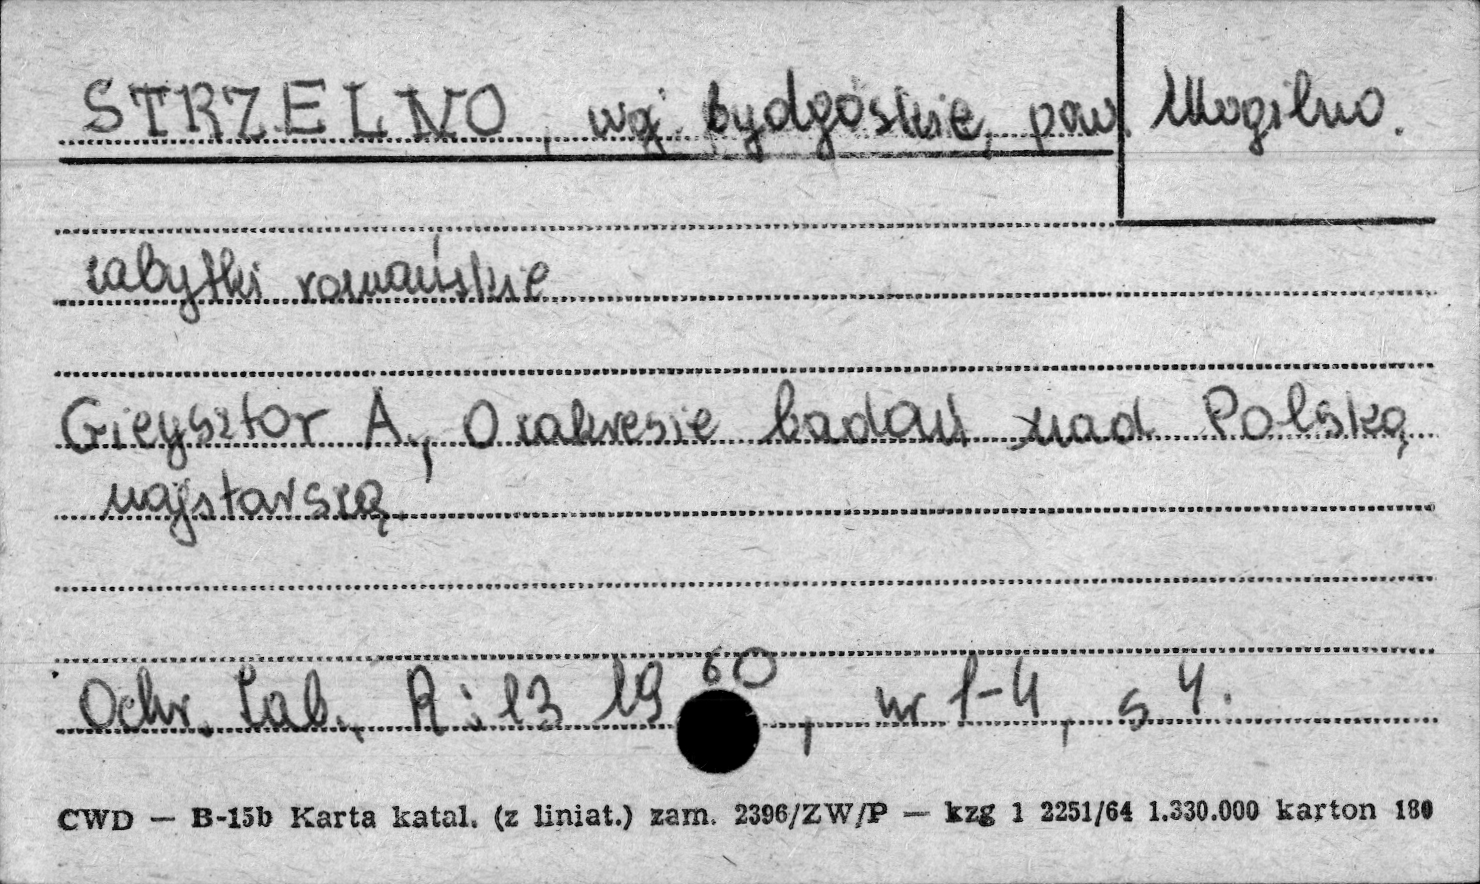 STRZELNO, woj. bydgoskie, pow. Mogilno.
zabytki romańskie
Gieysztor A., O zakresie badań nad Polską
najstarszą
Ochr. Zab., R: 13 1960, nr 1-4, s 4.
CWD — B-15b Karta katal. (z liniat.) zam. 2396/ZW/P — kzg 1 2251/64 1.330.000 karton 180